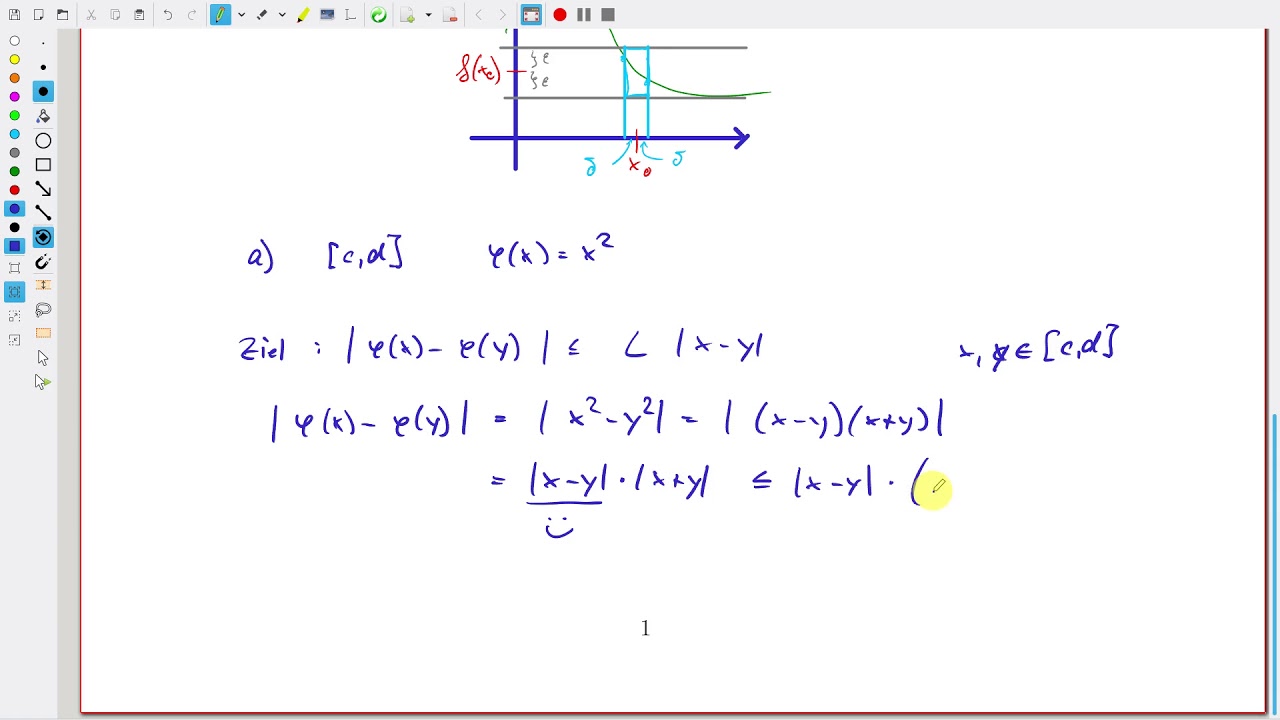 f(x₀)
ε
ε
δ x₀ δ
a) [c,d] φ(x) = x²
Ziel : | φ(x) - φ(y) | ≤ L |x - y| x, y ∈ [c,d]
| φ(x) - φ(y) | = | x² - y² | = | (x-y)(x+y) |
= |x-y| · |x+y| ≤ |x-y| · (
1